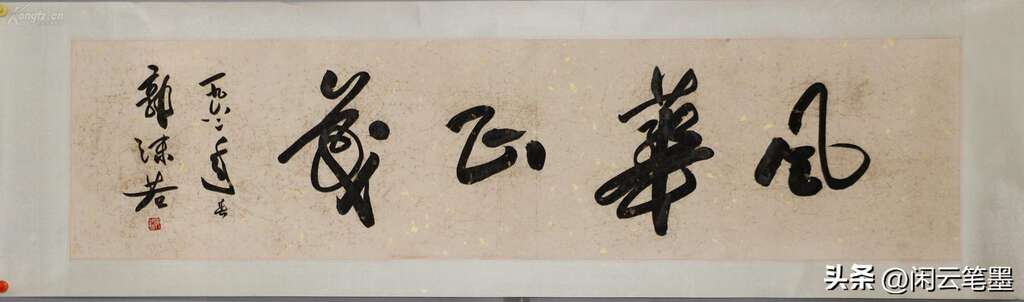 风華正茂
一九六二年春
郭沫若
Kongfz.cn
头条 @闲云笔墨